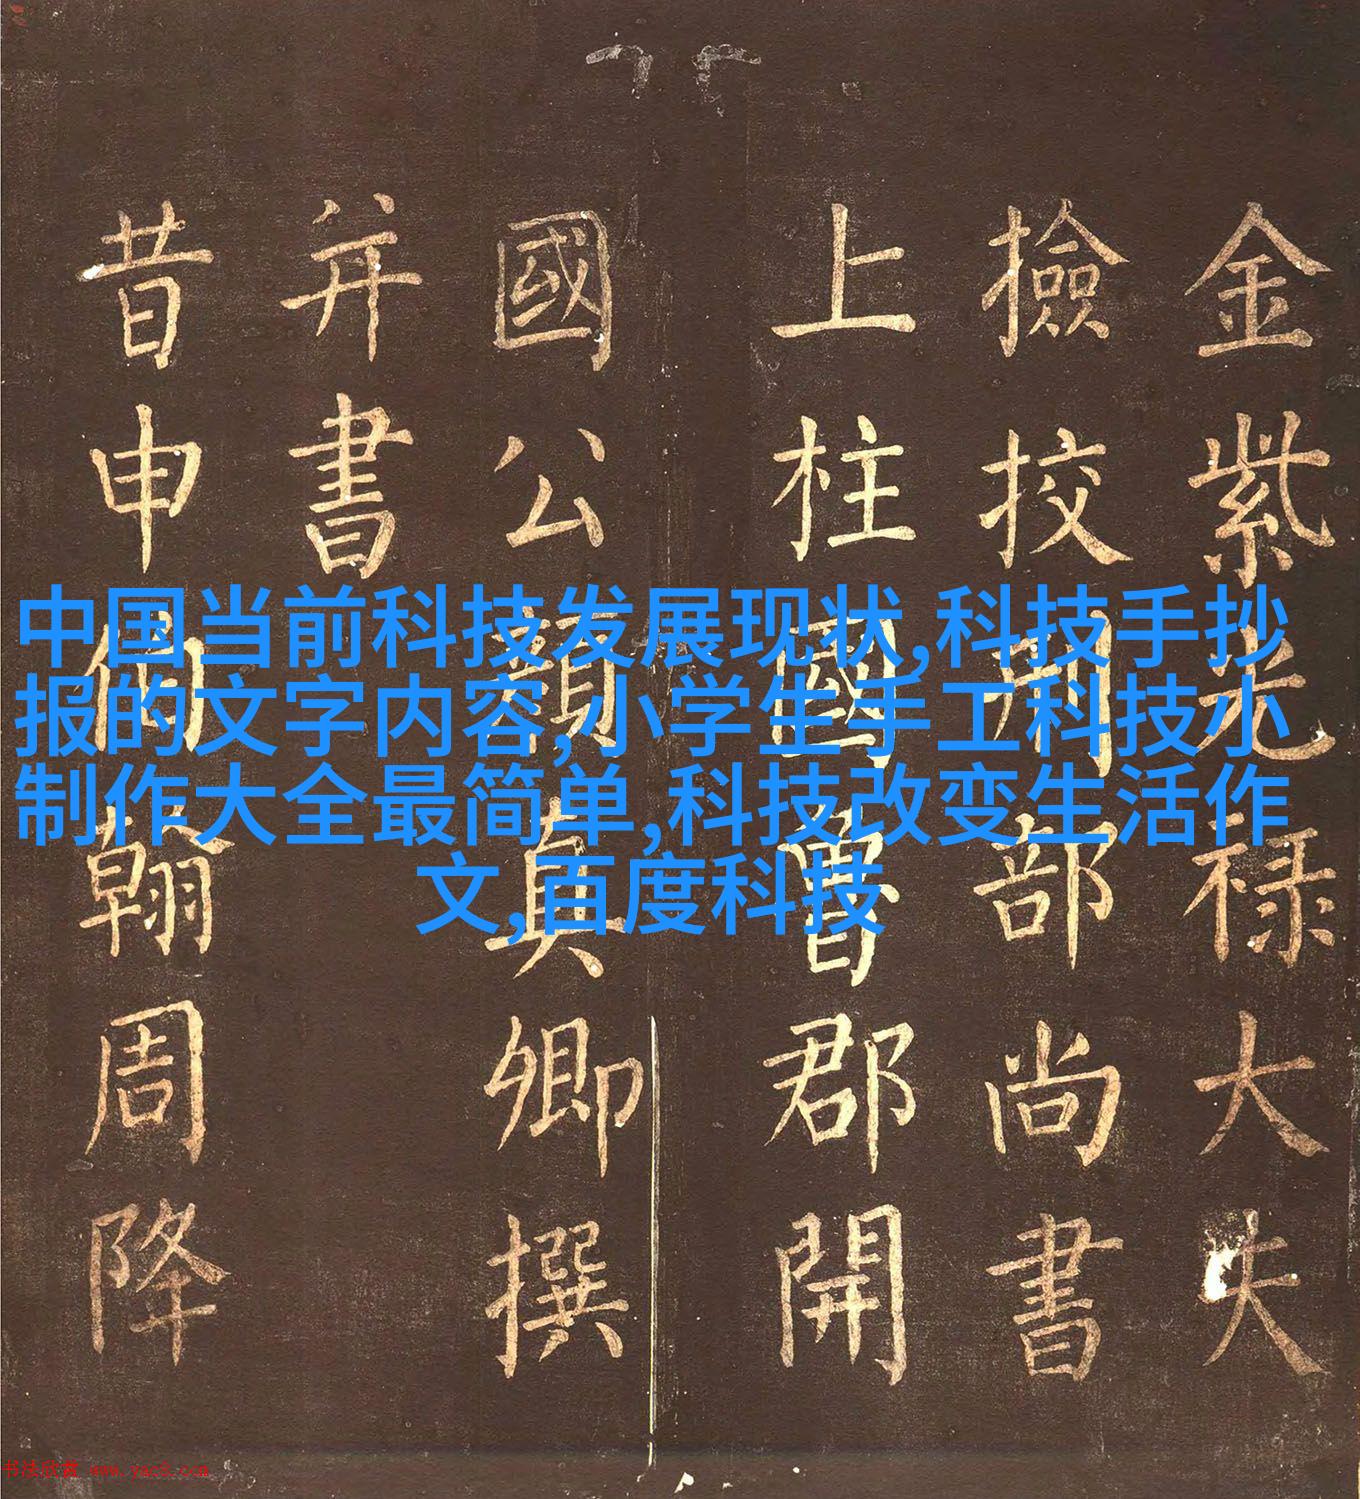 中国当前科技发展现状,科技手抄
报的文字内容,小学生手工科技小
制作大全最简单,科技改变生活作
文,百度科技
金紫光禄大夫
撿挍刑部尚書
上柱國魯郡開
國公顏真卿撰
并書
昔申伯翰周降
书法欣赏 www.yac8.com